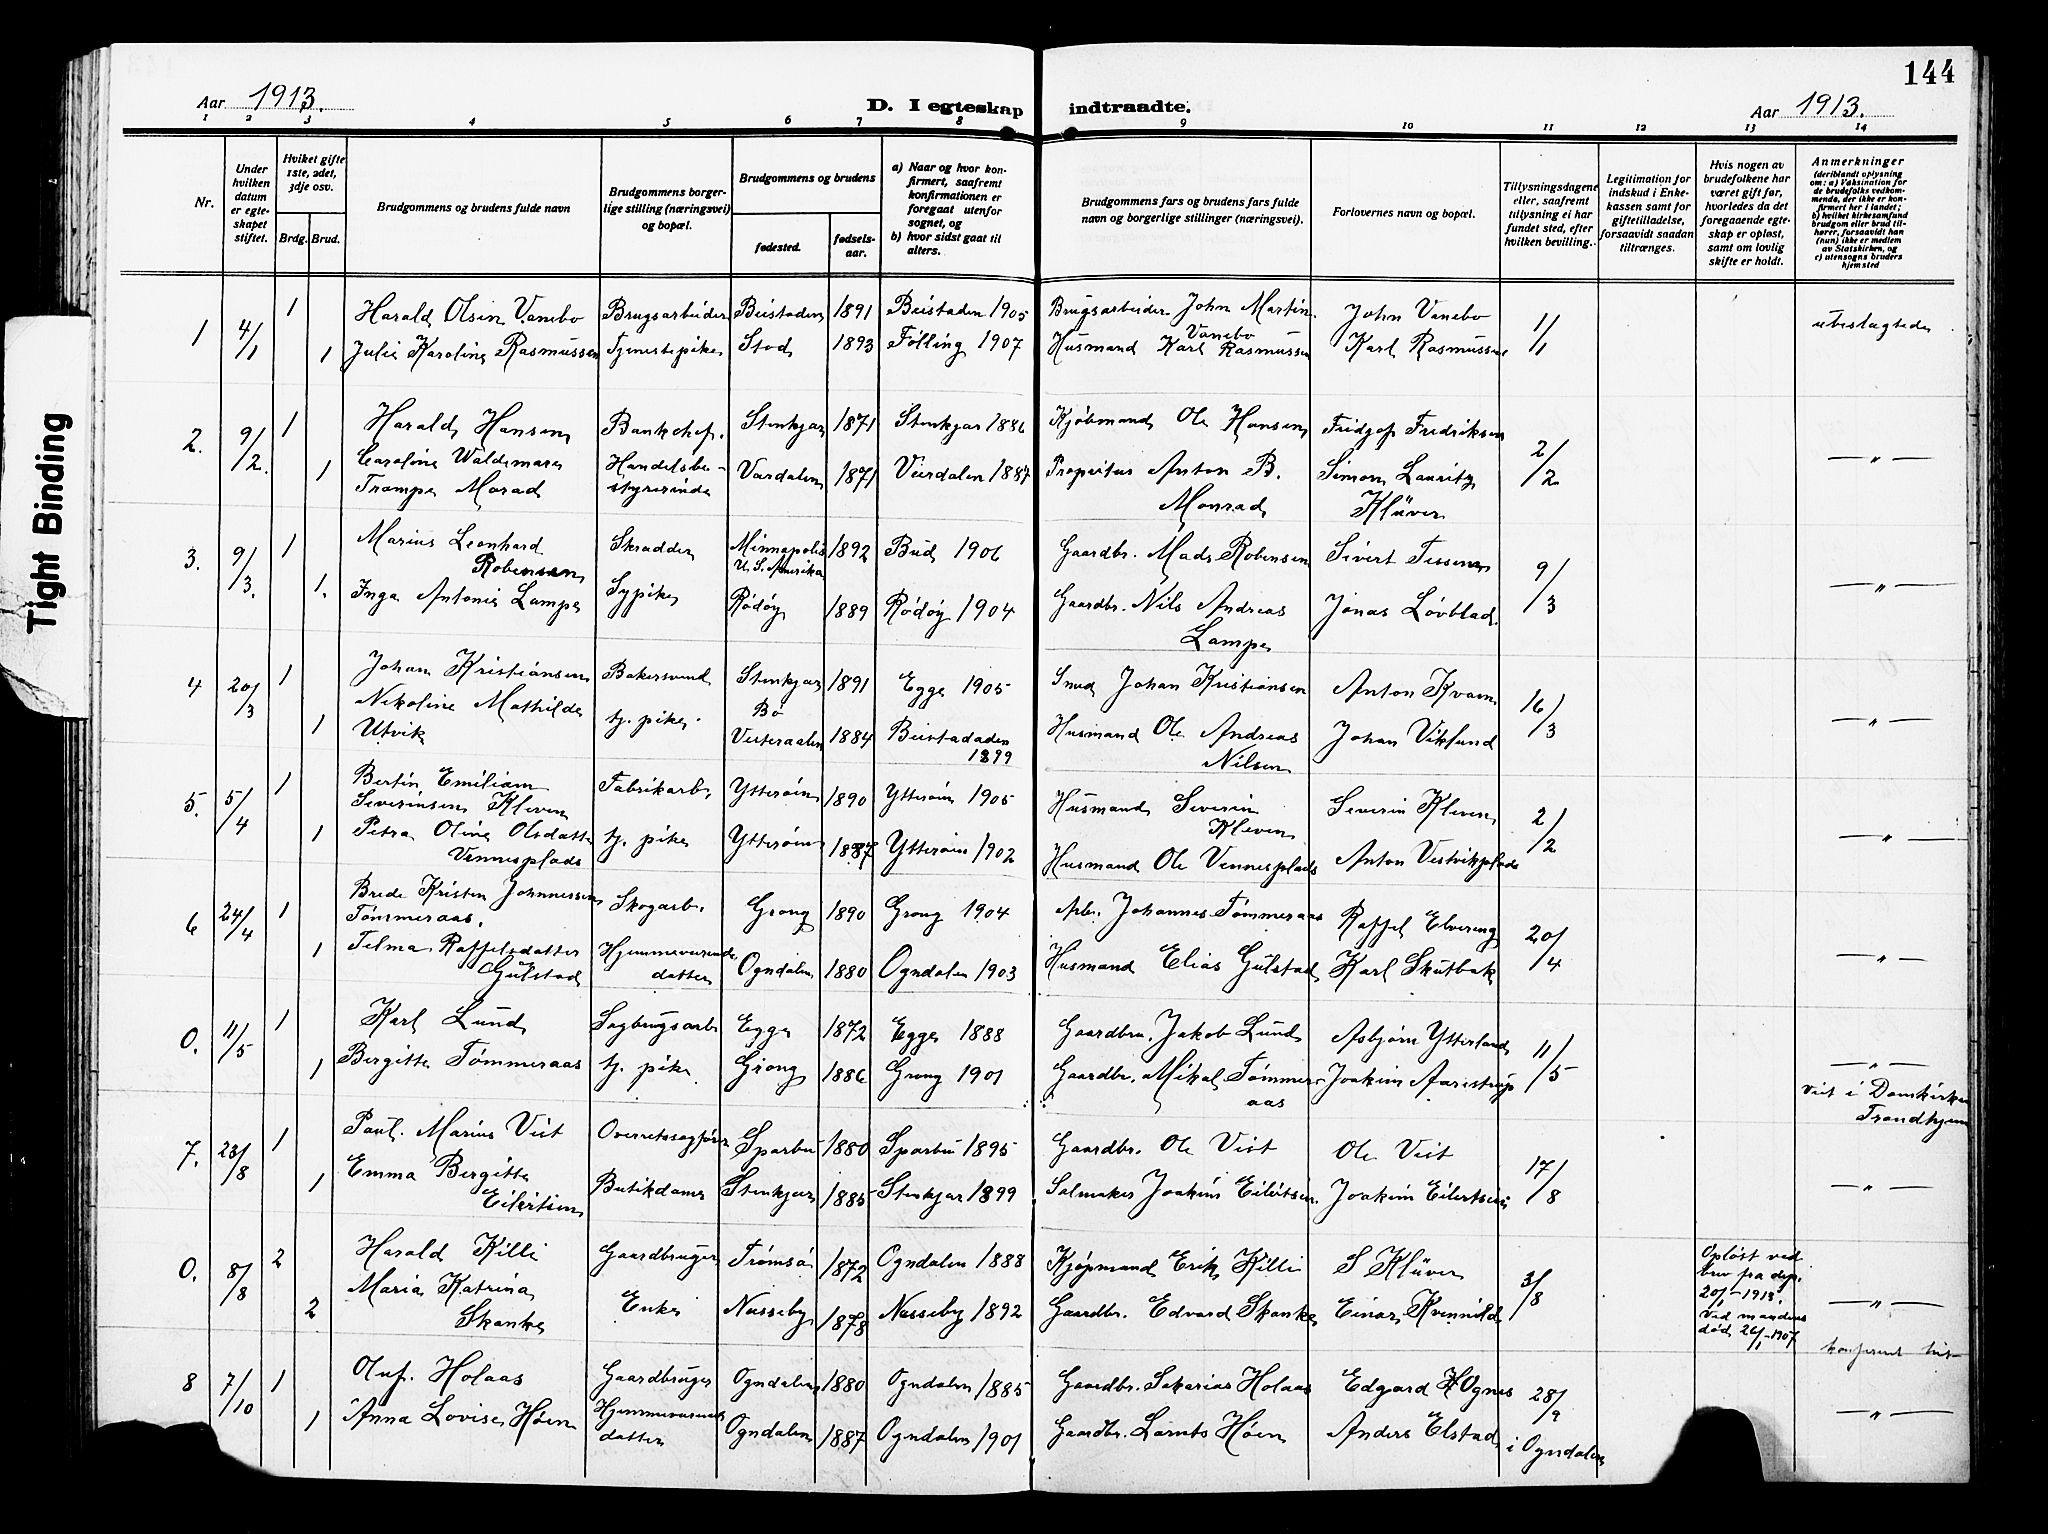 144
Aar 1913.
D. I egteskap indtraadte.
Aar 1913.
1 2 3 4 5 6 7 8 9 10 11 12 13 14
Nr.
Under hvilken datum er egteskapet stiftet.
Hviket gifte 1ste, 2det, 3dje osv.
Brdg. Brud.
Brudgommens og brudens fulde navn
Brudgommens borgerlige stilling (næringsvei) og bopæl.
Brudgommens og brudens
fødested. fødselsaar.
a) Naar og hvor konfirmert, saafremt konfirmationen er foregaat utenfor sognet, og
b) hvor sidst gaat til alters.
Brudgommens fars og brudens fars fulde navn og borgerlige stillinger (næringsvei).
Forlovernes navn og bopæl.
Tillysningsdagene eller, saafremt tillysning ei har fundet sted, efter hvilken bevilling.
Legitimation for indskud i Enkekassen samt for giftetilladelse, forsaavidt saadan tiltrænges.
Hvis nogen av brudefolkene har været gift før, hvorledes da det foregaaende egteskap er opløst, samt om lovlig skifte er holdt.
Anmerkninger (deriblandt oplysning om: a) Vaksination for de brudefolks vedkommende, der ikke er konfirmert her i landet; b) hvilket kirkesamfund brudgom eller brud tilhører, forsaavidt han (hun) ikke er medlem av Statskirken, og c) utensogns bruders hjemsted
1 4/1 1 Harald Olsen Vanebo Brugsarbeider Beistaden 1891 Beistaden 1905 Brugsarbeider John Martin Vanebo John Vanebo 1/1 ubeslægtede
1 Julie Karoline Rasmussen Tjenestepike Stod 1893 Følling 1907 Husmand Karl Rasmussen Karl Rasmussen
2. 9/2. 1 Harald Hansen Bankchef. Stenkjær 1871 Stenkjær 1886 Kjøbmand Ole Hansen Fridgof Fredriksen 2/2 — " —
1 Caroline Waldemara Trampe Morad Handelsbestyrerinde Værdalen 1871 Veirdalen 1887 Proprietær Anton B. Monrad Simon Lauritz Klüver
3. 9/3. 1 Marius Leonhard Robensen Skrædder Minnapolis U. S. Amerika 1892 Bud 1906 Gaardbr. Mads Robensen Sivert Tessem 9/3 — " —
1. Inga Antonie Lampe Sypike Rödöy 1889 Rödöy 1904 Gaardbr. Nils Andreas Lampe Jonas Løvblad.
4 20/3 1 Johan Kristiansen Bakersvend Stenkjær 1891 Egge 1905 Smed Johan Kristiansen Anton Kvam 16/3 — " —
1 Nikoline Mathilde Utvik tj. pike. Bö Vesteraalen 1884 Beistadaden 1899 Husmand Ole Andreas Nilsen Johan Viklund
5. 5/4 1 Bertin Emiliam Severinsen Kleven Fabrikarb. Ytterøien 1890 Ytterøin 1905 Husmand Severin Kleven Severin Kleven 2/2 — " —
1 Petra Oline Olsdatter Vennesplads tj. pike Ytterøien 1887 Ytterøin 1902 Husmand Ole Vennesplads Anton Vestvikplads
6 24/4 1 Brede Kristen Johannessen Tømmeraas. Skogarb. Grong 1890 Grong 1904 Arb. Johannes Tømmeraas Raffel Elvereng 20/4 — " —
1 Telma Raffelsdatter Gulstad Hjemmeværende datter Ogndalen 1880 Ogndalen 1903 Husmand Elias Gulstad Karl Skutbak
0. 11/5 1 Karl Lund Sagbrugsarb Egge 1872 Egge 1888 Gaardbru. Jakob Lund Asbjørn Ytterland 11/5 — " —
1 Bergitte Tømmeraas tj. pike Grong 1886 Grong 1901 Gaardbr. Mikal Tømmeraas Joakim Aarstrup
Viet i Domkirken Trondhjem
7. 23/8 1 Paul. Marius Vist Overretssagfører Sparbu 1880 Sparbu 1895 Gaardbr. Ole Vist Ole Vist 17/8 — " —
1 Emma Bergitte Eilertsen Butikdame Stenkjær 1885 Stenkjær 1899 Salmaker Joakim Eilertsen Joakim Eilertsen
0. 8/8 2 Harald Killi Gaardbruger Tromsø 1872 Ogndalen 1888 Kjøpmand Erik Killi S Klüver 3/8 Opløst ved brev fra dep. 20/1-1913. — " —
2 Maria Katrina Skanke Enke Nesseby 1878 Nesseby 1892 Gaardbr. Edvard Skanke Einar Kvernild Ved mandens død 26/1-1907
8 7/10 1 Oluf. Holaas Gaardbruger Ogndalen 1880 Ogndalen 1885 Gaardbr. Sakarias Holaas Edgard H Ognes 28/9 — " —
1 Anna Lovise Høin Hjemmeværende datter Ogndalen 1887 Ogndalen 1901 Gaardbr. Lornts Høin Anders Elstad i Ogndalen
Tight Binding